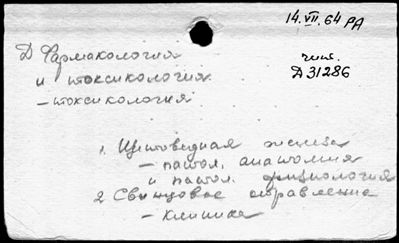 14.VII.64 РА
чит.
Д31286
Д Фармакология
и токсикология
- токсикология
1. Щитовидная железа
- патол. анатомия
и патол. физиология
2 Свинцовое отравление
- клиника